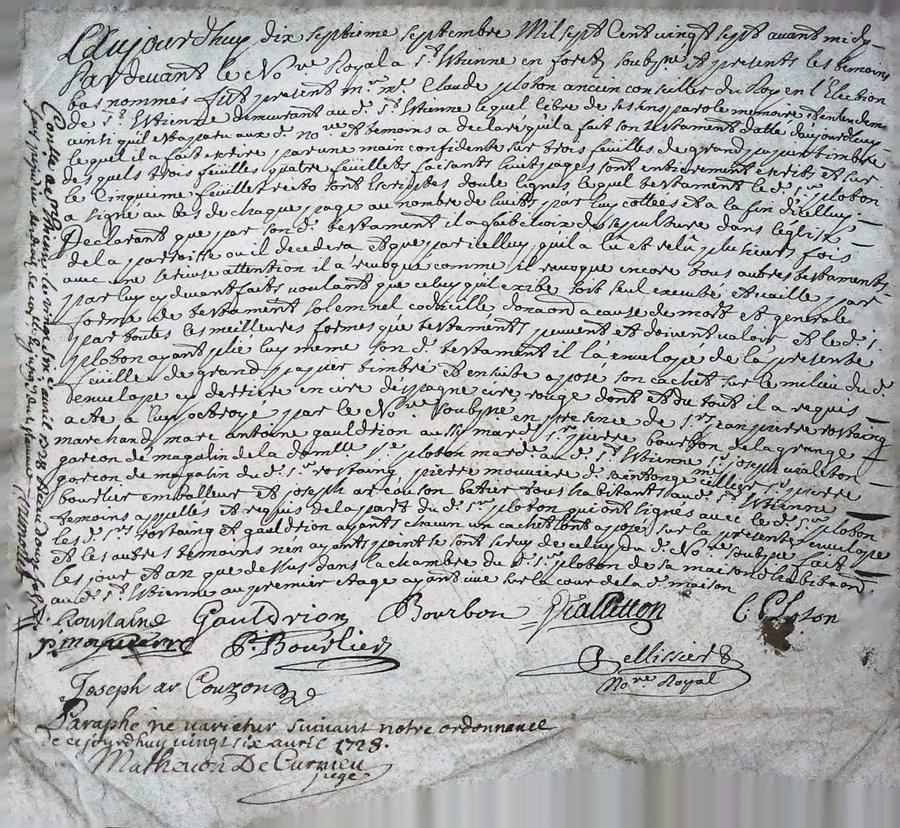 Aujourdhuy dix septieme septembre Mil sept Cent vingt sept avant midy
Par devant le No.re Royal a S.t Etienne en forets soubs.ne Et presents les temoins
bas nommés fut present m.re m.e Claude ploton ancien conseiller du Roy en l'Election
de S.t Etienne demeurant aud. S.t Etienne lequel libre de ses sens parole memoire Et entendeme
ainsi qu'il est aparu aux d. No.re Et temoins a declaré qu'il a fait son testament datte daujourdhuy
lequel il a fait ecrire par une main confidente sur trois feuilles de grand papier timbre
desquels trois feuilles quatre feuillets faisants huit pages sont entierement ecrits et sur
le Cinquieme feuillet recto sont Escrites douse lignes, lequel testament led. S.r ploton
a signé au bas de chaque page au nombre de huit, par luy collées et a la fin dicelluy
Declarant que par son d. testament il a fait choix de sepulture dans leglise
de la paroisse ou il decedera Et que par icelluy qu'il a lû et relû plusieurs fois
avec une serieuse attention il a revoqué comme il revoque encore tous autres testaments
par luy cy devant faits voulant que celuy qu'il exibe soit seul executé et vaille par
forme de testament solemnel codicille donaôn a cause de mort et generale
par toutes les meilleures formes que testaments peuvent et doivent valoir Et le d. S.r
ploton ayant plié luy meme son d. testament il la envelope de la presente
feuille de grand papier timbre Et ensuite aposé son cachet sur le milieu du d.
denvelope au derriere en cire despagne cire rouge dont et du tout il a requis
acte a luy octroyé par le No.re soubs.ne en presence de S.r Jean pierre rostaing
marchand, marc antoine gauldrion aussy march.d S.r pierre bourbon de la grange
garcon de magasin de la d.elle ploton march.de aud. S.t Etienne, S.r joseph vialeton
garcon de magasin du d. S.r rostaing pierre
bourlier emballeur Et joseph ar couson batier tous habitants aud. S.t Etienne
temoins appelles et requis de la part du d. S.r ploton qui ont signés avec le d. S.r ploton
les d. S.rs rostaing et gauldrion ayants chacun un cachet lont aposé sur la presente envelope
et les autres temoins nen ayants point se sont servy de celuy du d. No.re soubs.ne fait
les jour Et an que dessus dans la chambre du d. S.r ploton de sa maison dhabitaôn
aud. S.t Etienne au premier etage ayant vüe sur la cour de la d. maison
Gauldrion Bourbon Vialleton C. Ploton
P. Bourlier
Pellissier
No.re Royal
Joseph ar Couzon
Paraphe ne varietur suivant notre ordonnance
de ce jourdhuy vingt six avril 1728.
Mathevon De Curnieu
juge